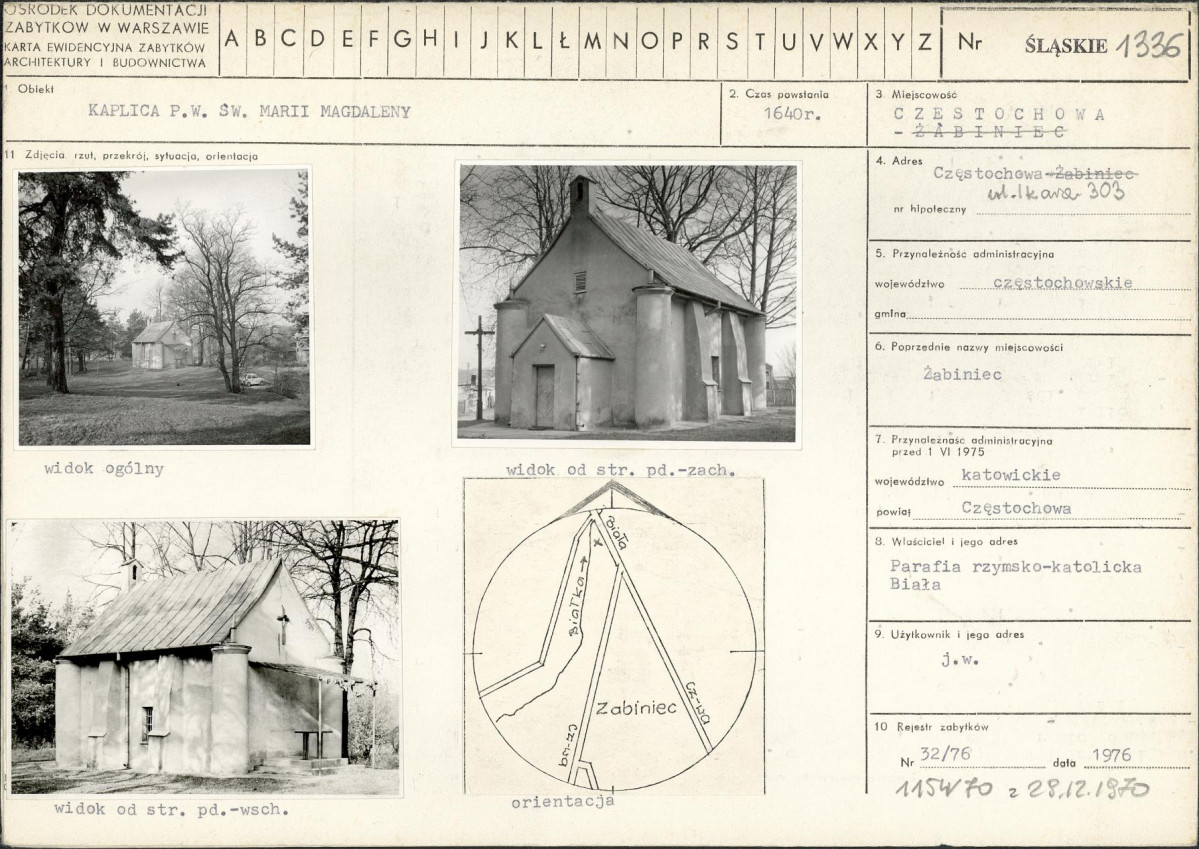 OŚRODEK DOKUMENTACJI
ZABYTKÓW W WARSZAWIE
KARTA EWIDENCYJNA ZABYTKÓW
ARCHITEKTURY I BUDOWNICTWA
A B C D E F G H I J K L Ł M N O P R S T U V W X Y Z
Nr ŚLĄSKIE 1336
1. Obiekt
KAPLICA P.W. ŚW. MARII MAGDALENY
2. Czas powstania
1640r.
3 Miejscowość
CZESTOCHOWA
- ŻABINIEC
11 Zdjęcia, rzut, przekrój, sytuacja, orientacja
widok ogólny
widok od str. pd.-zach.
widok od str. pd.-wsch.
Biała
Białka
Zabiniec
cz-wa
cz-wa
orientacja
4. Adres
Częstochowa-Żabiniec
ul. Ikara 303
nr hipoteczny
5. Przynależność administracyjna
województwo częstochowskie
gmina
6. Poprzednie nazwy miejscowości
Żabiniec
7. Przynależność administracyjna
przed 1 VI 1975
województwo katowickie
powiat Częstochowa
8. Właściciel i jego adres
Parafia rzymsko-katolicka
Biała
9. Użytkownik i jego adres
j.w.
10 Rejestr zabytków
Nr 32/76 data 1976
115W70 z 29.12.1970